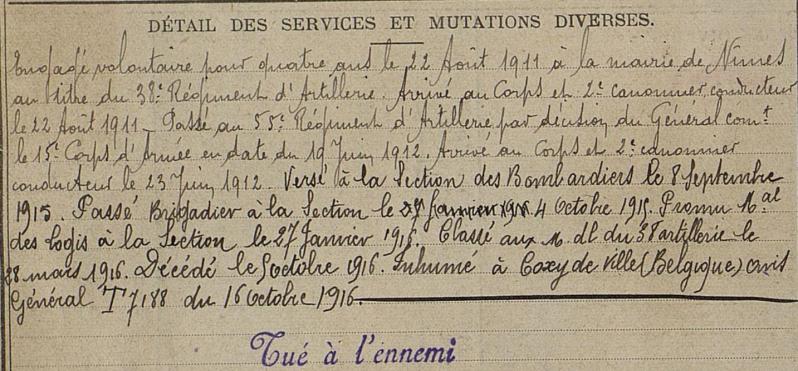 DÉTAIL DES SERVICES ET MUTATIONS DIVERSES.
Engagé volontaire pour quatre ans le 22 Août 1911 à la mairie de Nimes
au titre du 38e Régiment d'Artillerie. Arrivé au Corps et 2e canonnier conducteur
le 22 Août 1911 _ Passé au 55e Régiment d'Artillerie par décision du Général comt
le 15e Corps d'Armée en date du 19 Juin 1912. Arrivé au Corps et 2e canonnier
conducteur le 23 Juin 1912. Versé à la Section des Bombardiers le 8 Septembre
1915. Passé Brigadier à la Section le 4 Octobre 1915. Promu Mal
des logis à la Section le 27 Janvier 1916. Classé aux M. dl du 38 artillerie le
28 mars 1916. Décédé le 5 octobre 1916. Inhumé à Coxyde Ville (Belgique) avis
Général T 7188 du 16 Octobre 1916.
Tué à l'ennemi